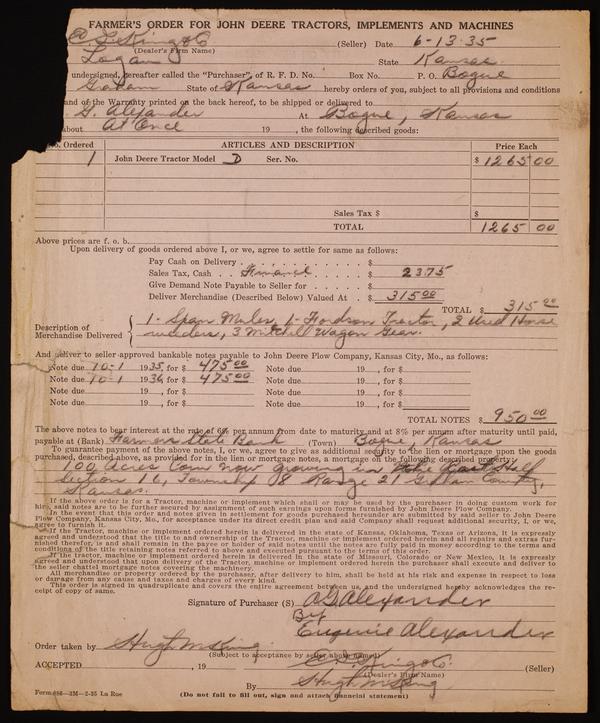 FARMER'S ORDER FOR JOHN DEERE TRACTORS, IMPLEMENTS AND MACHINES
C. E. King & Co (Seller) Date 6-13-35
(Dealer's Firm Name)
Logan State Kansas.
undersigned, hereafter called the "Purchaser", of R. F. D. No. Box No. P. O. Bogue
Graham State of Kansas hereby orders of you, subject to all provisions and conditions
and of the Warranty printed on the back hereof, to be shipped or delivered to
G. Alexander At Bogue, Kansas
about At Once 19 , the following described goods:
Ordered ARTICLES AND DESCRIPTION Price Each
1 John Deere Tractor Model D Ser. No. $ 1265 00
Sales Tax $ $
TOTAL 1265 00
Above prices are f. o. b.
Upon delivery of goods ordered above I, or we, agree to settle for same as follows:
Pay Cash on Delivery $
Sales Tax, Cash Finance $ 23 75
Give Demand Note Payable to Seller for $
Deliver Merchandise (Described Below) Valued At $ 315 00
TOTAL $ 315 00
Description of Merchandise Delivered { 1- Span Mules, 1- Fordson Tractor, 2 Used Horse
weeders, 3 Mitchell Wagon Gear.
And deliver to seller approved bankable notes payable to John Deere Plow Company, Kansas City, Mo., as follows:
Note due 10-1 1935, for $ 475 00 Note due 19 , for $
Note due 10-1 1936, for $ 475 00 Note due 19 , for $
Note due 19 , for $ Note due 19 , for $
Note due 19 , for $ Note due 19 , for $
TOTAL NOTES $ 950 00
The above notes to bear interest at the rate of 6% per annum from date to maturity and at 8% per annum after maturity until paid,
payable at (Bank) Farmers State Bank (Town) Bogue, Kansas
To guarantee payment of the above notes, I, or we, agree to give as additional security to the lien or mortgage upon the goods
purchased, described above, as provided for in the lien or mortgage notes, a mortgage on the following described property:
100 Acres Corn now growing in the East Half
Section 16, Township 8 Range 21 Graham County,
Kansas.
If the above order is for a Tractor, machine or implement which shall or may be used by the purchaser in doing custom work for
hire, said notes are to be further secured by assignment of such earnings upon form furnished by John Deere Plow Company.
In the event that this order and notes given in settlement for goods purchased hereunder are submitted by said seller to John Deere
Plow Company, Kansas City, Mo., for acceptance under its direct credit plan and said Company shall request additional security, I, or we,
agree to furnish it.
If the Tractor, machine or implement ordered herein is delivered in the state of Kansas, Oklahoma, Texas or Arizona, it is expressly
agreed and understood that the title to and ownership of the Tractor, machine or implement ordered herein and all repairs and extras furnished
therefor, is and shall remain in the payee or holder of said note until the notes are fully paid in money according to the terms and
conditions of the title retaining notes referred to above and executed pursuant to the terms of this order.
If the tractor, machine or implement ordered herein is delivered in the state of Missouri, Colorado or New Mexico, it is expressly
agreed and understood that upon delivery of the Tractor, machine or implement ordered herein the purchaser shall execute and deliver to
the seller chattel mortgage notes covering the machinery.
All merchandise or property ordered by the purchaser, after delivery to him, shall be held at his risk and expense in respect to loss
or damage from any cause and taxes and charges of every kind.
This order is signed in quadruplicate and covers the entire agreement between us, and the undersigned hereby acknowledges the receipt
of copy of same.
Signature of Purchaser (S) A G Alexander
By
Eugenie Alexander
Order taken by Hugh M King
(Subject to acceptance by seller above named)
ACCEPTED , 19 C. E. King & Co. (Seller)
(Dealer's Firm Name)
By Hugh M King
Form 686-3M-2-35 La Rue (Do not fail to fill out, sign and attach financial statement)